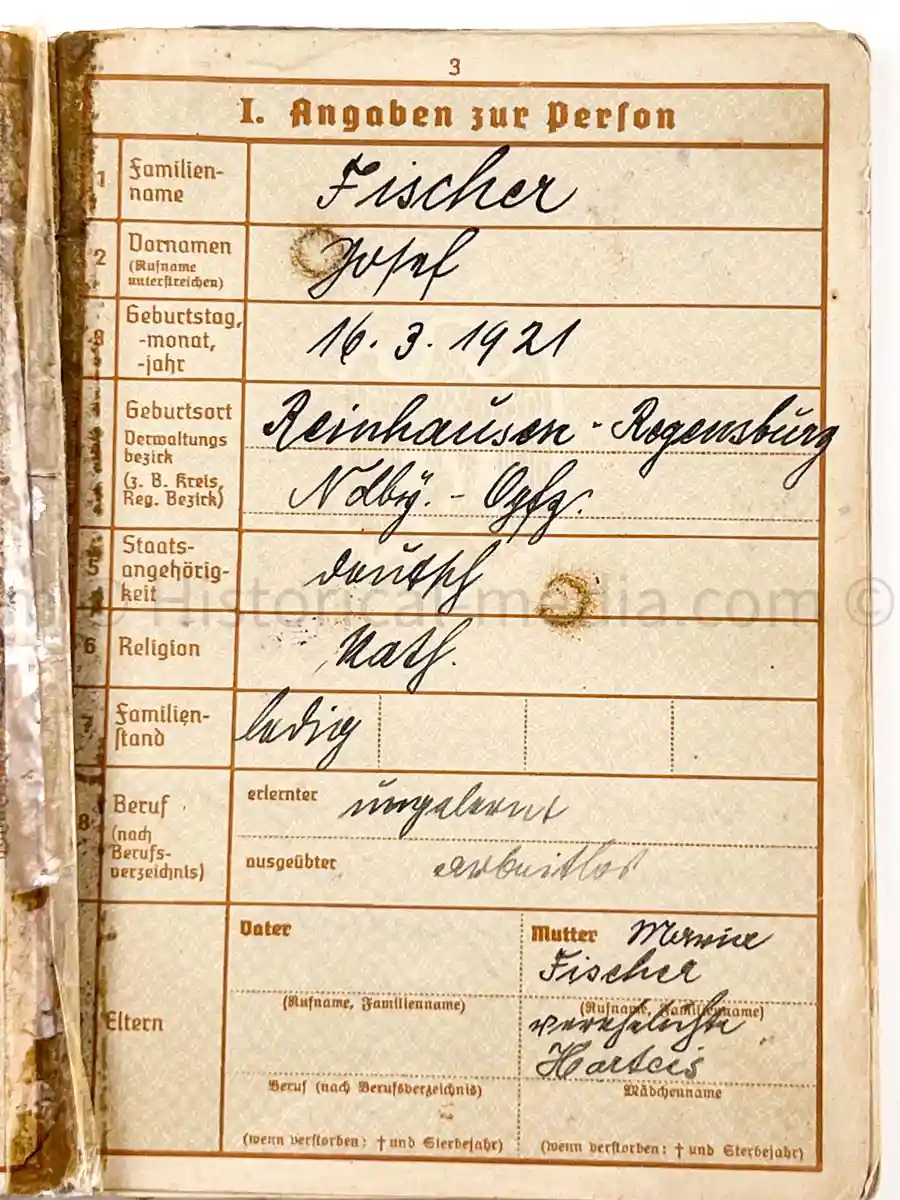 3
I. Angaben zur Person
1 Familien-
name
Fischer
2 Vornamen
(Rufname
unterstreichen)
Josef
3 Geburtstag,
-monat,
-jahr
16. 3. 1921
Geburtsort
Verwaltungs
bezirk
(z. B. Kreis,
Reg. Bezirk)
Reinhausen - Regensburg
Ndby. - Opfz.
5 Staats-
angehörig-
keit
deutsch
6 Religion
Kath.
Familien-
stand
ledig
8 Beruf
(nach
Berufs-
verzeichnis)
erlernter ungelernt
ausgeübter arbeitlos
Eltern
Vater
(Rufname, Familienname)
Beruf (nach Berufsverzeichnis)
(wenn verstorben: † und Sterbejahr)
Mutter Maria
Fischer
(Rufname, Familienname)
verehelichte
Harteis
Mädchenname
(wenn verstorben: † und Sterbejahr)
© Historical-media.com ©